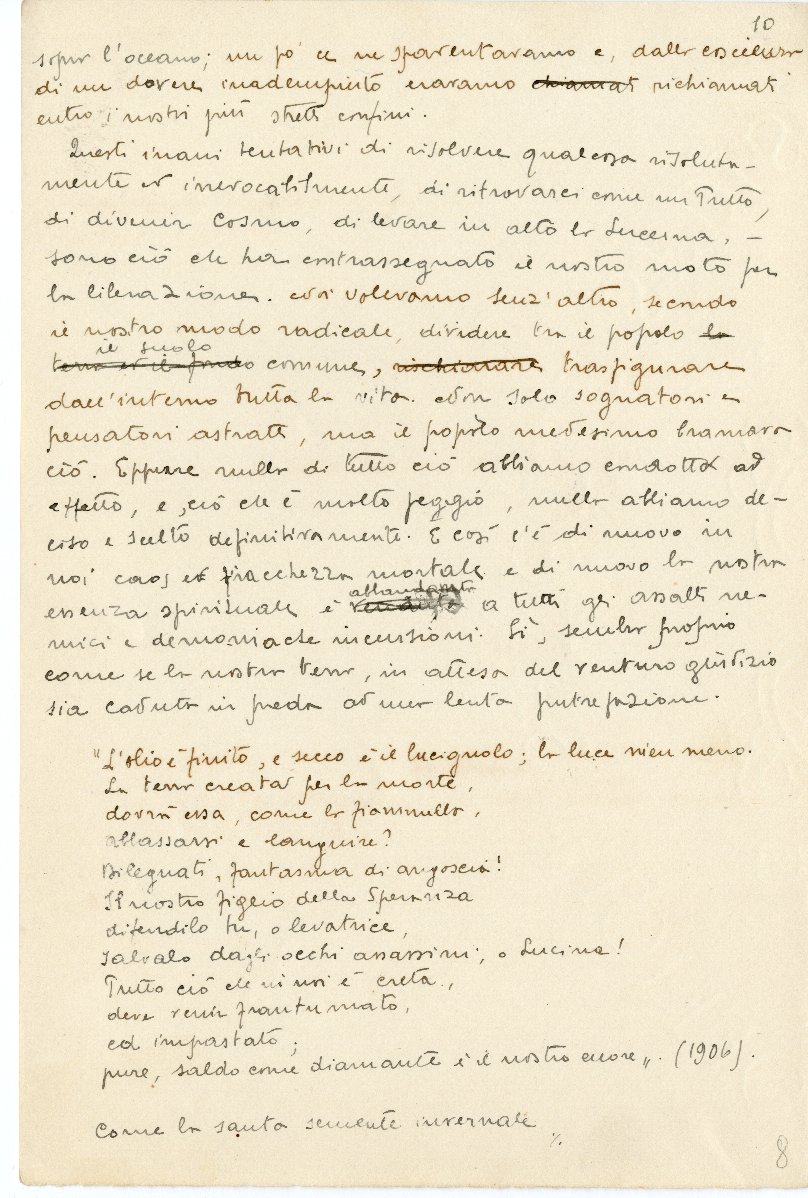 10
sopra l'oceano; un po' ce ne spaventavamo e, dalla coscienza
di un dovere inadempiuto eravamo chiamat richiamati
entro i nostri più stretti confini.
Questi inani tentativi di risolvere qualcosa risoluta-
mente ed irrevocabilmente, di ritrovarci come un Tutto,
di divenir Cosmo, di levare in alto la Lucerna, -
sono ciò che ha contrassegnato il nostro moto per
la liberazione. Noi volevamo senz'altro, secondo
il nostro modo radicale, dividere tra il popolo la
il suolo
terra ed il fondo comune, rischiarare trasfigurare
dall'interno tutta la vita. Non solo sognatori e
pensatori astratti, ma il popolo medesimo bramava
ciò. Eppure nulla di tutto ciò abbiamo condotto ad
effetto, e, ciò che è molto peggio, nulla abbiamo de-
ciso e scelto definitivamente. E così c'è di nuovo in
noi caos e fiacchezza mortale e di nuovo la nostra
abbandonata
essenza spirituale è a tutti gli assalti ne-
mici e demoniache incursioni. Sì, sembra proprio
come se la nostra terra, in attesa del venturo giudizio
sia caduta in preda ad una lenta putrefazione.
"L'olio è finito, e secco è il lucignolo; la luce vien meno.
La terra creata per la morte,
dovrà essa, come la fiammella,
abbassarsi e languire?
Dileguati, fantasma di angoscia!
Il nostro figlio della Speranza
difendilo tu, o levatrice,
salvalo dagli occhi assassini, o Lucina!
Tutto ciò che in noi è creta,
deve venir frantumato,
ed impastato;
pure, saldo come diamante è il nostro cuore". (1906).
Come la santa semente invernale
./.
8